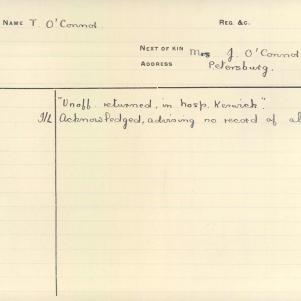 NAME T. O'Connor REG. &C.
NEXT OF KIN Mrs J. O'Connor
ADDRESS Petersburg.
"Unoff. returned, in hosp. Keswick".
Acknowledged, advising no record of